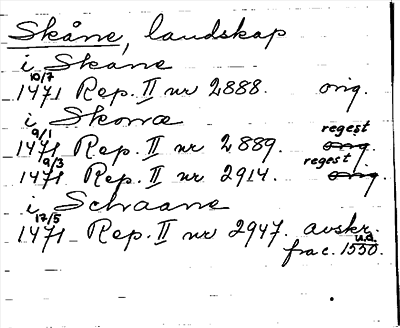 Skåne, landskap
i Skane
10/7
1471 Rep. II nr 2888. orig.
i Skonæ
9/1 regest
1471 Rep. II nr 2889. orig.
9/3 regest
1471 Rep. II nr 2914. orig.
i Schaane
17/5
1471 Rep. II nr 2947. avskr. u.d.
fr. a c. 1550.